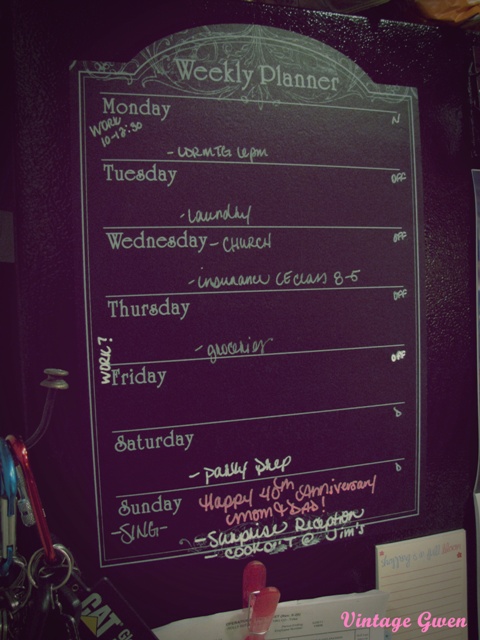 Weekly Planner
Monday
N
WORK
10-12:30
Tuesday
OFF
- laundry
Wednesday - CHURCH
OFF
- insurance CE class 8-5
Thursday
OFF
WORK?
- groceries
Friday
OFF
Saturday
D
- party prep
Sunday
D
-SING-
Happy 40th Anniversary
Mom & DAD!
- Surprise Reception
- COOKOUT @ Jim's
CAT
Vintage Gwen